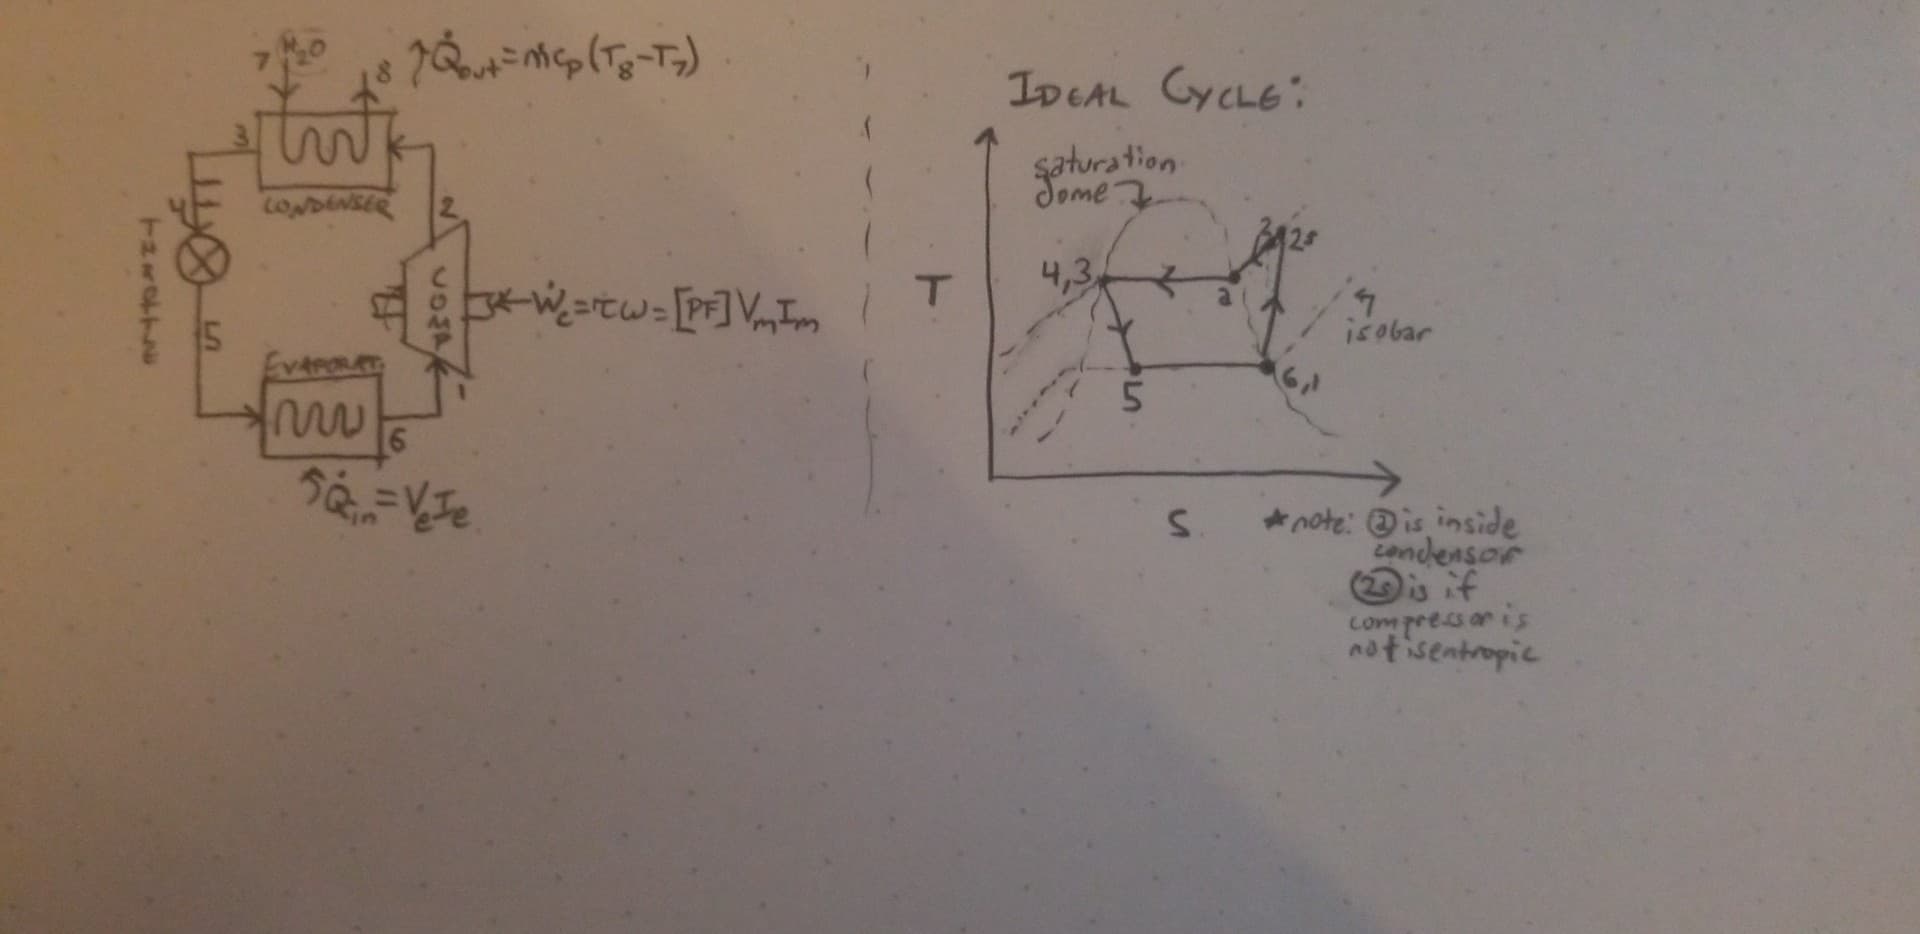 7 H₂O
8 ↑Q̇out=ṁcp(T8-T7)
3
CONDENSER
4
2
THROTTLE
COMP
Ẇc=τω=[PF]VmIm
5
EVAPORAT.
1
6
↑Q̇in=VeIe
IDEAL CYCLE:
saturation
dome
2s
4,3
T
a
isobar
6,1
5
S
*note: ⓐ is inside
condensor
(2s) is if
compressor is
not isentropic